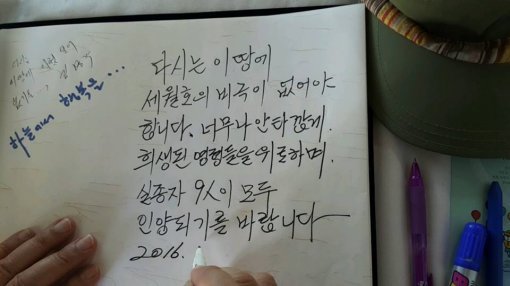 하늘에서 행복을...
다시는 이 땅에
세월호의 비극이 없어야
합니다. 너무나 안타깝게
희생된 영령들을 위로하며.
실종자 9人이 모두
인양되기를 바랍니다
2016.